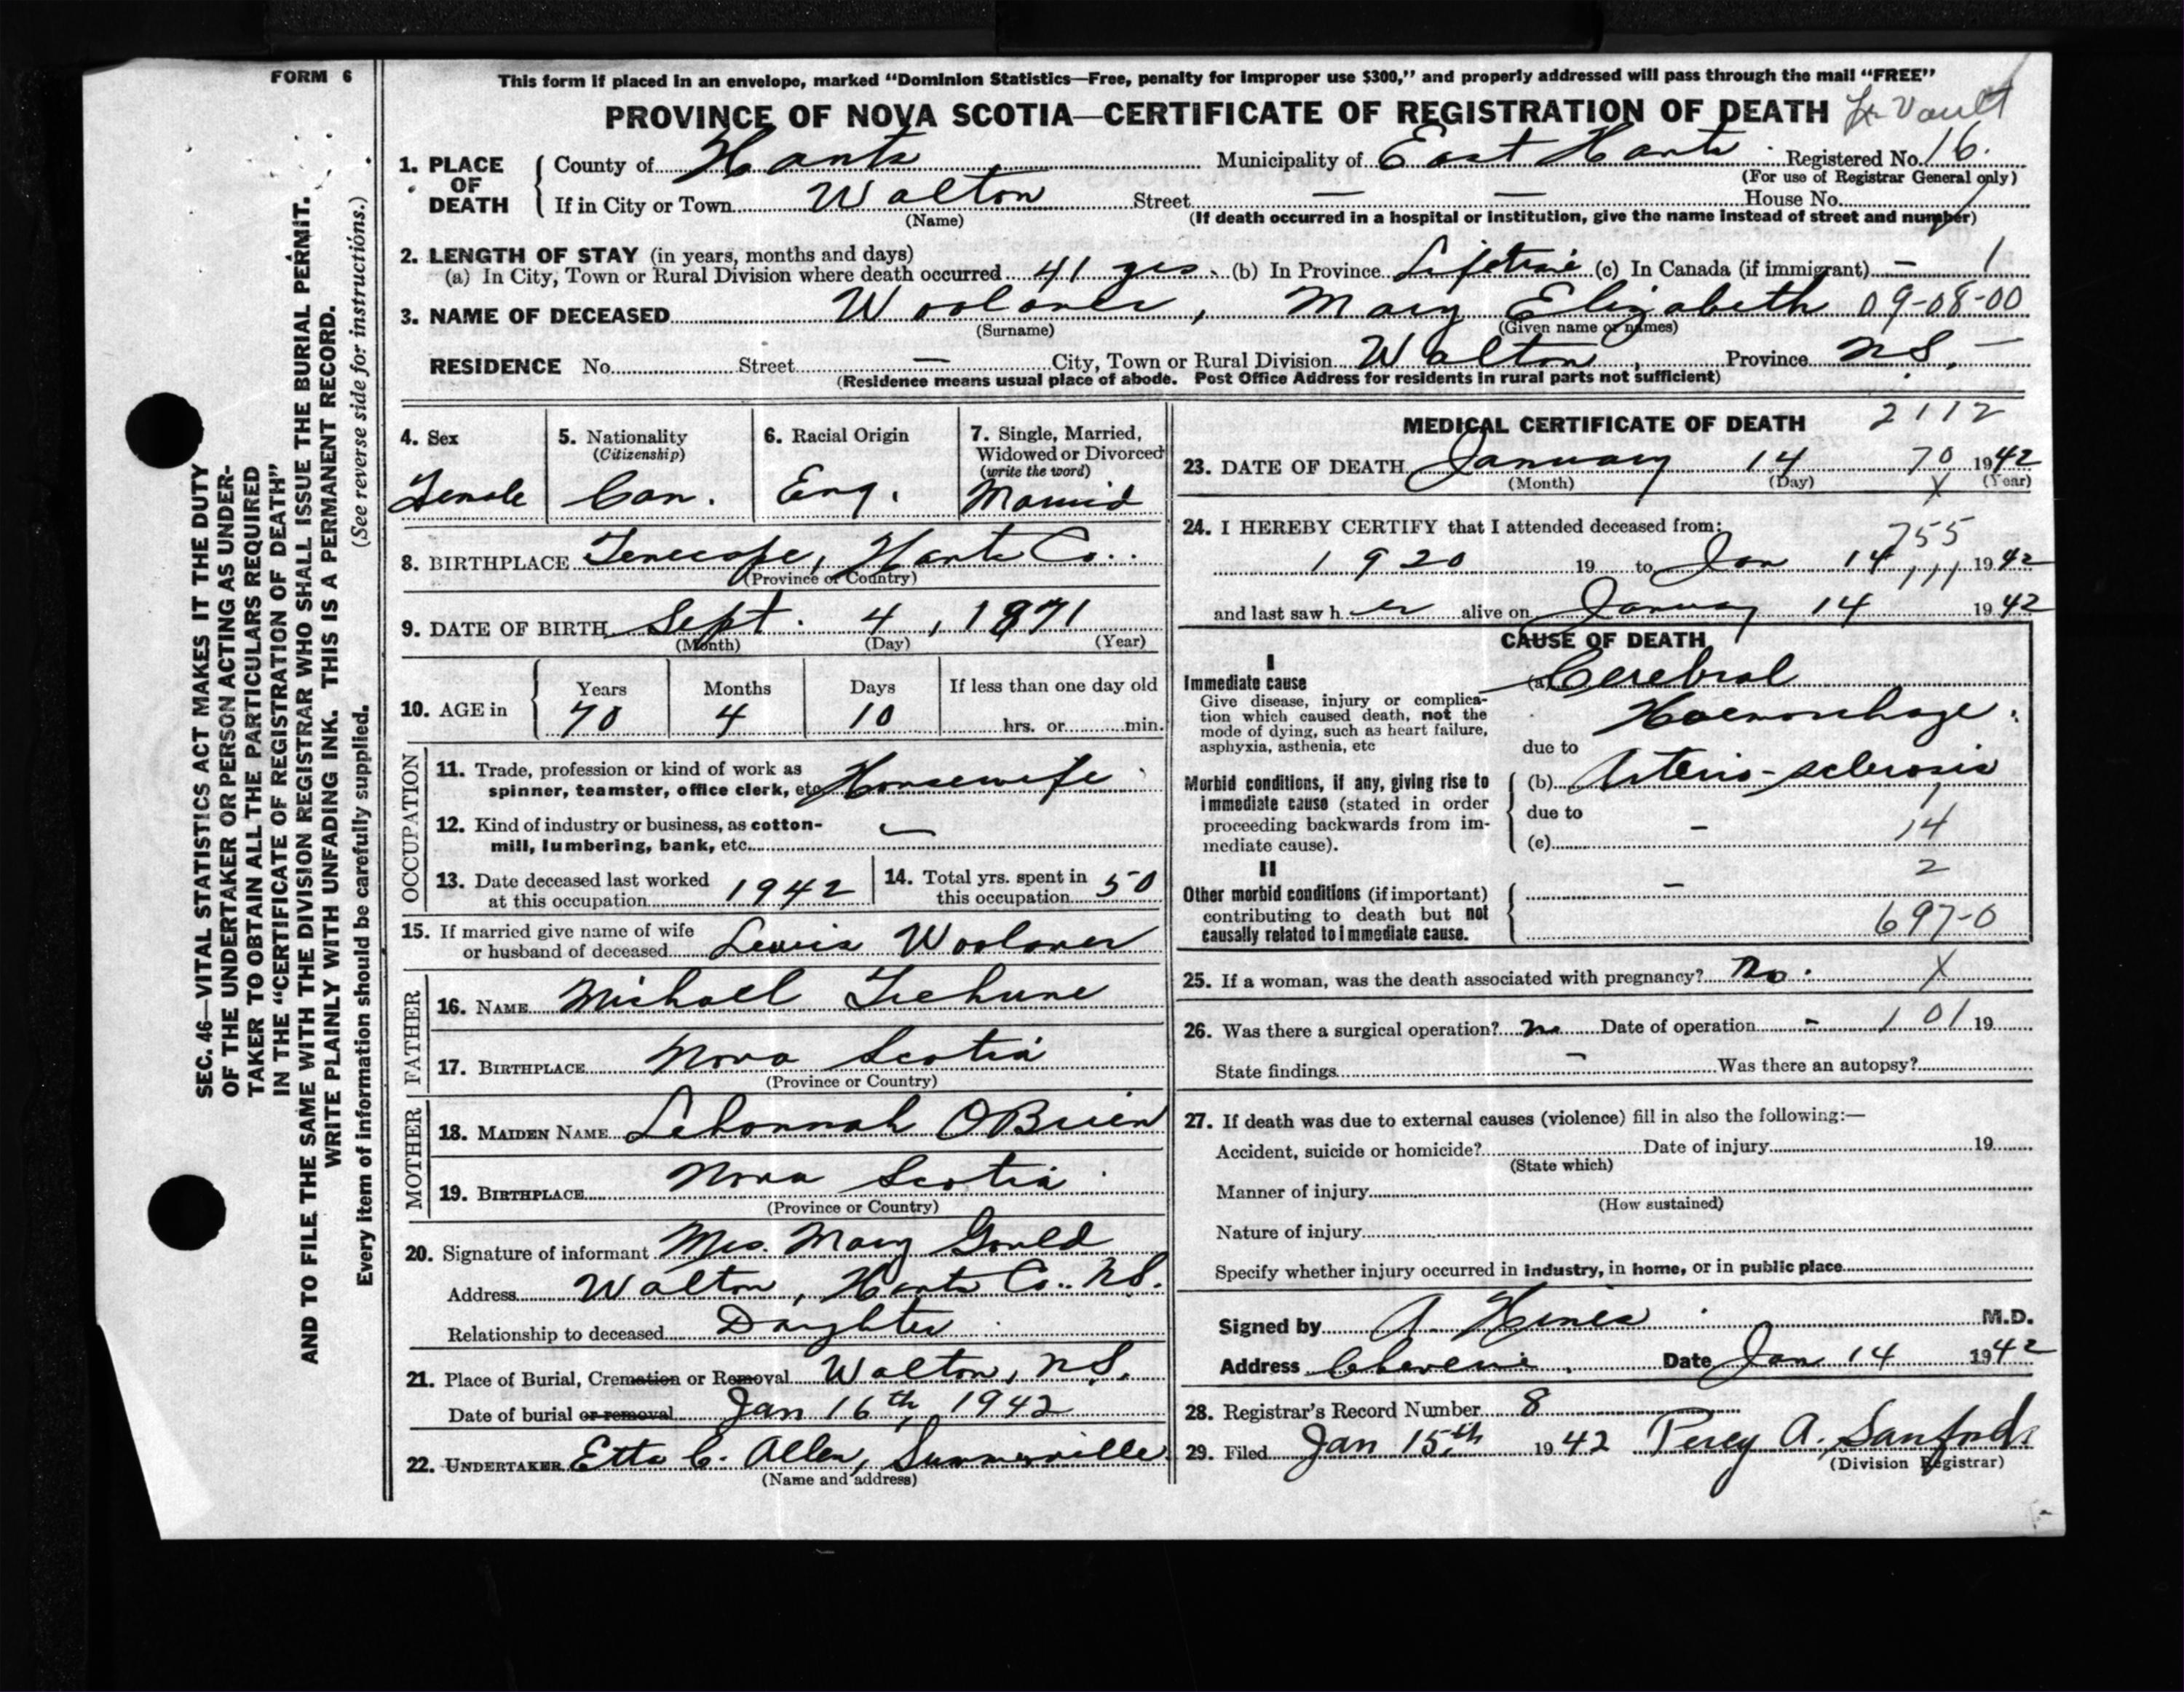 FORM 6
This form if placed in an envelope, marked “Dominion Statistics—Free, penalty for improper use $300,” and properly addressed will pass through the mail “FREE”
PROVINCE OF NOVA SCOTIA—CERTIFICATE OF REGISTRATION OF DEATH Vault
1. PLACE OF DEATH County of Hants Municipality of East Hants Registered No. 16.
(For use of Registrar General only)
If in City or Town Walton Street — — House No.
(Name) (If death occurred in a hospital or institution, give the name instead of street and number)
2. LENGTH OF STAY (in years, months and days)
(a) In City, Town or Rural Division where death occurred 41 yrs. (b) In Province Lifetime (c) In Canada (if immigrant) — 1
3. NAME OF DECEASED Woolaver, Mary Elizabeth 09-08-00
(Surname) (Given name or names)
RESIDENCE No. Street — City, Town or Rural Division Walton, Province N.S. —
(Residence means usual place of abode. Post Office Address for residents in rural parts not sufficient)
4. Sex 5. Nationality 6. Racial Origin 7. Single, Married,
(Citizenship) Widowed or Divorced
(write the word)
Female Can. Eng. Married
8. BIRTHPLACE Tenecape, Hants Co.
(Province or Country)
9. DATE OF BIRTH Sept. 4, 1871
(Month) (Day) (Year)
10. AGE in Years Months Days If less than one day old
70 4 10 hrs. or min.
OCCUPATION
11. Trade, profession or kind of work as
spinner, teamster, office clerk, etc. Housewife
12. Kind of industry or business, as cotton-
mill, lumbering, bank, etc. —
13. Date deceased last worked
at this occupation 1942
14. Total yrs. spent in
this occupation 50
15. If married give name of wife
or husband of deceased Lewis Woolaver
FATHER
16. NAME Michael
17. BIRTHPLACE Nova Scotia
(Province or Country)
MOTHER
18. MAIDEN NAME OBrien
19. BIRTHPLACE Nova Scotia
(Province or Country)
20. Signature of informant Mrs. Mary Gould
Address Walton, Hants Co. N.S.
Relationship to deceased Daughter
21. Place of Burial, Cremation or Removal Walton, N.S.
Date of burial or removal Jan 16th, 1942
22. UNDERTAKER Etta C. Allen, Summerville
(Name and address)
MEDICAL CERTIFICATE OF DEATH 2112
23. DATE OF DEATH January 14 70 1942
(Month) (Day) X (Year)
24. I HEREBY CERTIFY that I attended deceased from: 755
1920 19 to Jan 14 111 1942
and last saw h er alive on January 14 1942
CAUSE OF DEATH
I
Immediate cause
Give disease, injury or complica-
tion which caused death, not the
mode of dying, such as heart failure,
asphyxia, asthenia, etc
(a) Cerebral
Haemorrhage.
due to
Morbid conditions, if any, giving rise to
immediate cause (stated in order
proceeding backwards from im-
mediate cause).
(b) Arterio-sclerosis
due to
(c) — 14
II 2
Other morbid conditions (if important)
contributing to death but not
causally related to immediate cause.
—
697-0
25. If a woman, was the death associated with pregnancy? No. X
26. Was there a surgical operation? no Date of operation - 1 01 19
State findings - Was there an autopsy?
27. If death was due to external causes (violence) fill in also the following:—
Accident, suicide or homicide? Date of injury 19
(State which)
Manner of injury
(How sustained)
Nature of injury
Specify whether injury occurred in industry, in home, or in public place
Signed by A. Hines M.D.
Address Cheverie. Date Jan 14 1942
28. Registrar's Record Number 8
29. Filed Jan 15th 1942 Percy A. Sanford
(Division Registrar)
SEC. 46—VITAL STATISTICS ACT MAKES IT THE DUTY
OF THE UNDERTAKER OR PERSON ACTING AS UNDER-
TAKER TO OBTAIN ALL THE PARTICULARS REQUIRED
IN THE “CERTIFICATE OF REGISTRATION OF DEATH”
AND TO FILE THE SAME WITH THE DIVISION REGISTRAR WHO SHALL ISSUE THE BURIAL PERMIT.
WRITE PLAINLY WITH UNFADING INK. THIS IS A PERMANENT RECORD.
Every item of information should be carefully supplied. (See reverse side for instructions.)